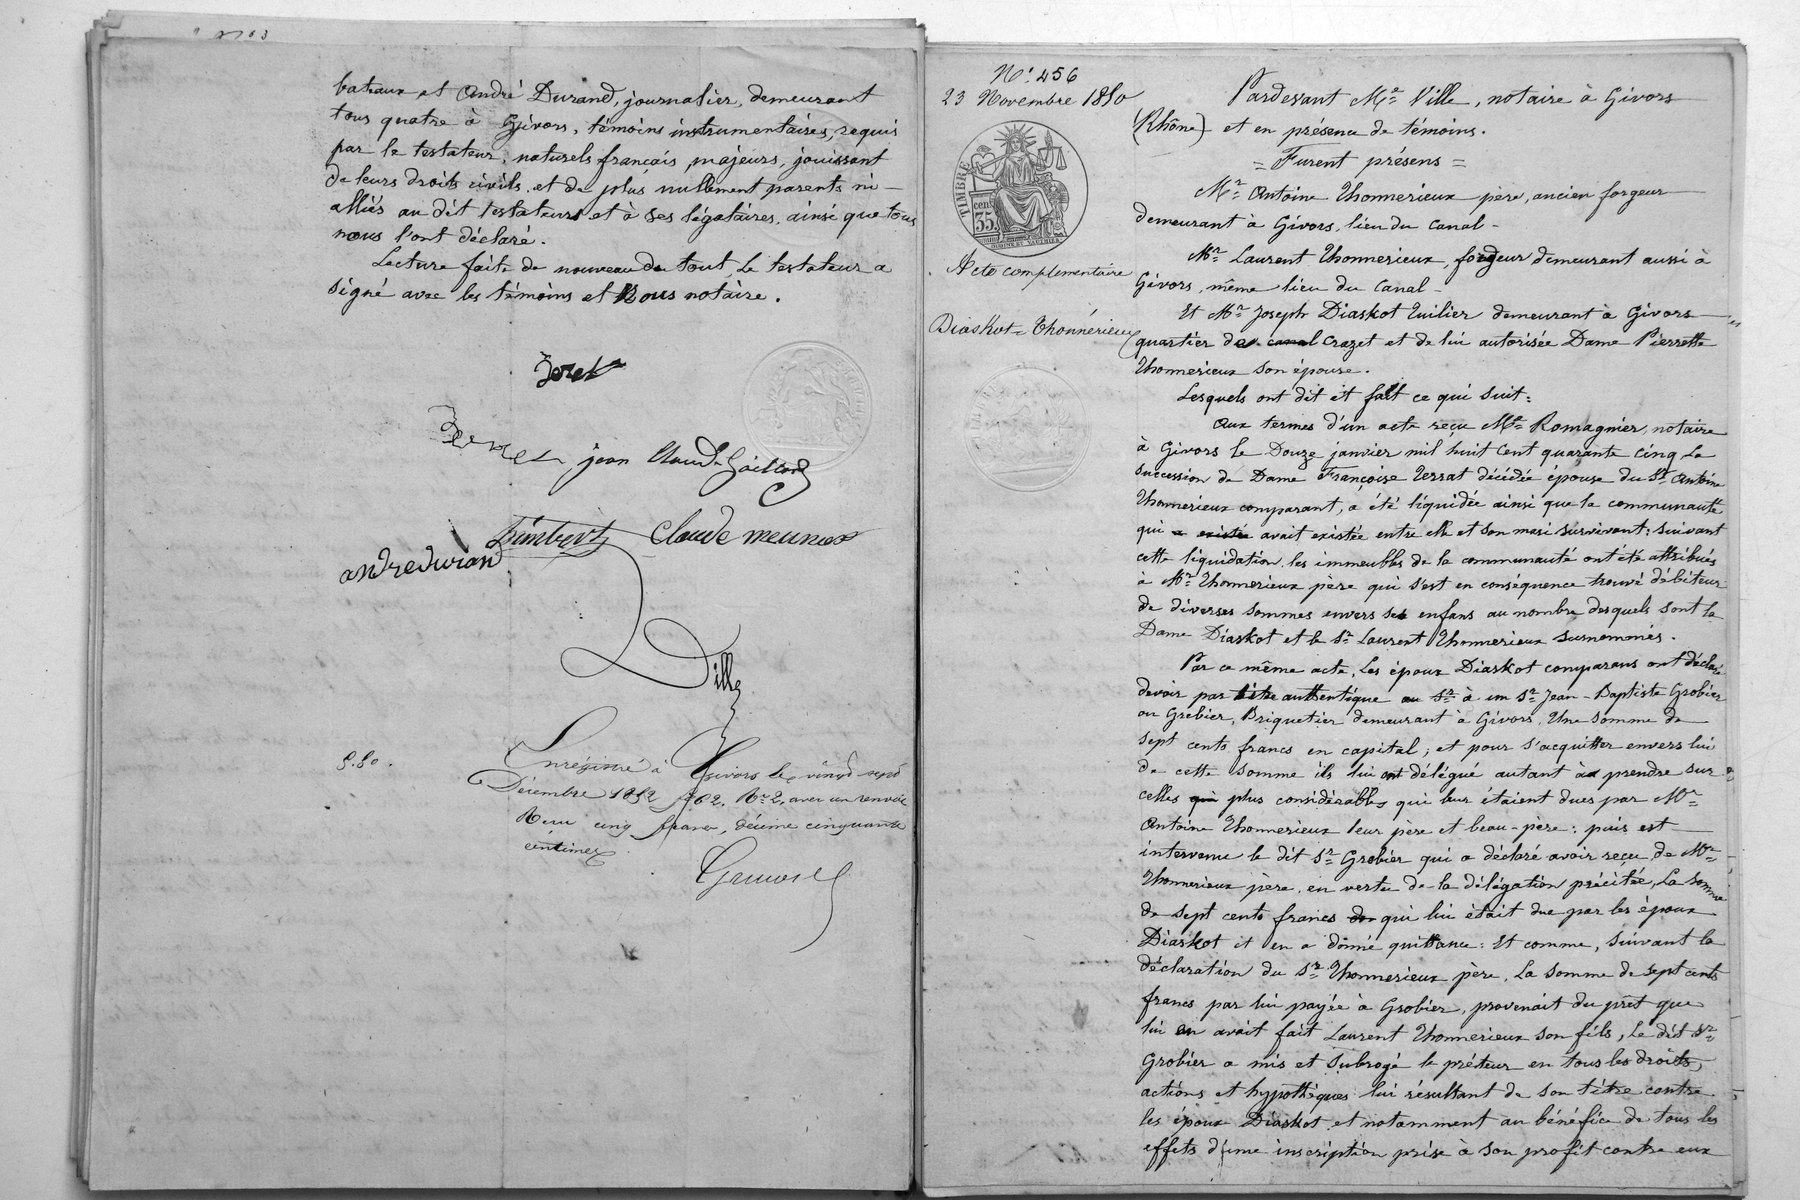 bateaux et André Durand, journalier, demeurant
tous quatre à Givors, témoins instrumentaires, requis
par le testateur, naturels français, majeurs, jouissant
de leurs droits civils, et de plus nullement parents ni
alliés au dit testateur et à ses légataires, ainsi que tous
nous l'ont déclaré.
Lecture faite de nouveau de tout, le testateur a
signé avec les témoins et Nous notaire.
jean Claude Gaillard
Himbert Claude meunier
andredurand
Ville
5.50.
Enregistré à Givors le vingt sept
Décembre 1852 f° 62, Rº 2, avec un renvoi
Reçu cinq francs, décime cinquante
centimes
N° 456
23 Novembre 1850
TIMBRE
35 cent
Acte complémentaire
Diaskot = Thonnérieux
Pardevant Me Ville, notaire à Givors
(Rhône) et en présence de témoins.
= Furent présens =
Mr Antoine Thonnerieux père, ancien forgeur
demeurant à Givors, lieu du Canal -
Mr Laurent Thonnerieux, forgeur demeurant aussi à
Givors, même lieu du Canal -
Et Mr Joseph Diaskot tuilier demeurant à Givors
quartier de canal Crozet et de lui autorisée Dame Pierrette
Thonnerieux son épouse.
Lesquels ont dit et fait ce qui suit:
Aux termes d'un acte reçu Me Romagnier, notaire
à Givors le Douze janvier mil huit cent quarante cinq la
succession de Dame Françoise Terrat décédée épouse du Sr Antoine
Thonnerieux comparant, a été liquidée ainsi que la communauté
qui a existé avait existée entre elle et son mari survivant: suivant
cette liquidation, les immeubles de la communauté ont été attribués
à Mr Thonnerieux père qui s'est en conséquence trouvé débiteur
de diverses sommes envers ses enfans au nombre desquels sont la
Dame Diaskot et le Sr Laurent Thonnerieux surnommés.
Par ce même acte, Les époux Diaskot comparans ont déclaré
devoir par titre authentique au Sr à un Sr Jean-Baptiste Grobier
ou Grebier, Briquetier demeurant à Givors, Une somme de
sept cents francs en capital; et pour s'acquitter envers lui
de cette somme ils lui ont délégué autant à prendre sur
celles qui plus considérables qui leur étaient dues par Mr
Antoine Thonnerieux leur père et beau-père: puis est
intervenu le dit Sr Grobier qui a déclaré avoir reçu de Mr
Thonnerieux père, en vertu de la délégation précitée, La somme
de sept cents francs de qui lui était due par les époux
Diaskot et en a donné quittance: Et comme, suivant la
déclaration du Sr Thonnerieux père, La somme de sept cents
francs par lui payée à Grobier, provenait du prêt que
lui en avait fait Laurent Thonnerieux son fils, Le dit Sr
Grobier a mis et subrogé le prêteur en tous les droits,
actions et hypothèques lui résultant de son titre contre
les époux Diaskot, et notamment au bénéfice de tous les
effets d'une inscription prise à son profit contre eux